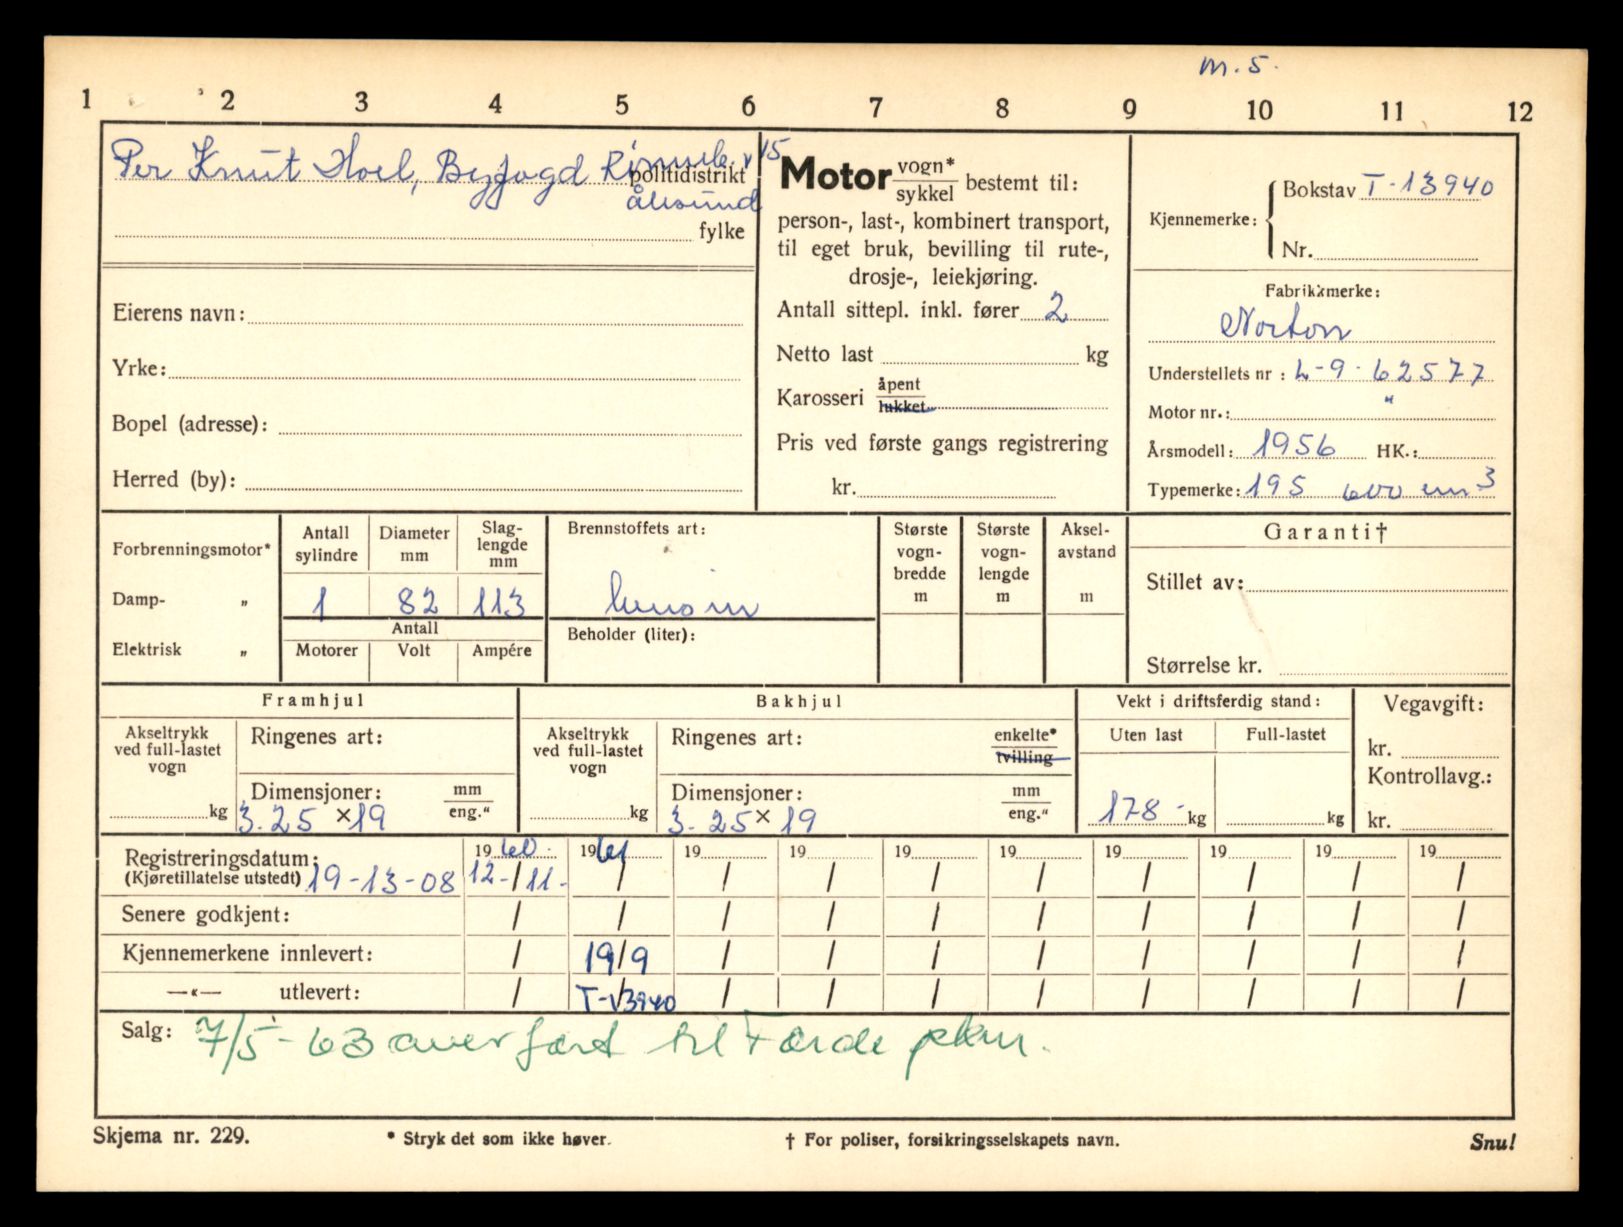 m.5.
1 2 3 4 5 6 7 8 9 10 11 12
Per Knut Hoel, Byfogd v 15
politidistrikt
fylke
Eierens navn:
Yrke:
Bopel (adresse):
Herred (by):
Motor vogn*/sykkel bestemt til:
person-, last-, kombinert transport,
til eget bruk, bevilling til rute-,
drosje-, leiekjøring.
Antall sittepl. inkl. fører 2
Netto last kg
Karosseri åpent/lukket
Pris ved første gangs registrering
kr.
Kjennemerke: Bokstav T-13940
Nr.
Fabrikkmerke:
Norton
Understellets nr : L-9-62577
Motor nr.: "
Årsmodell: 1956 HK.:
Typemerke: 195 600 cm3
Forbrenningsmotor*
Damp- "
Elektrisk "
Antall sylindre Diameter mm Slaglengde mm
1 82 113
Antall
Motorer Volt Ampére
Brennstoffets art:
bensin
Beholder (liter):
Største vogn-bredde m
Største vogn-lengde m
Aksel-avstand m
Garanti†
Stillet av:
Størrelse kr.
Framhjul
Akseltrykk ved full-lastet vogn
kg
Ringenes art:
Dimensjoner: mm/eng."
3.25 × 19
Bakhjul
Akseltrykk ved full-lastet vogn
kg
Ringenes art: enkelte*/tvilling
Dimensjoner: mm/eng."
3.25 × 19
Vekt i driftsferdig stand:
Uten last Full-lastet
178 kg kg
Vegavgift:
kr.
Kontrollavg.:
kr.
Registreringsdatum: 1960 1961 19 19 19 19 19 19 19 19
(Kjøretillatelse utstedt) 19-13-08 12-/11- / / / / / / / / /
Senere godkjent: / / / / / / / / / /
Kjennemerkene innlevert: / 19/9 / / / / / / / /
—«— utlevert: / T-13940 / / / / / / / /
Salg: 7/5-63 overført til Førde pkm.
Skjema nr. 229. * Stryk det som ikke høver. † For poliser, forsikringsselskapets navn. Snu!